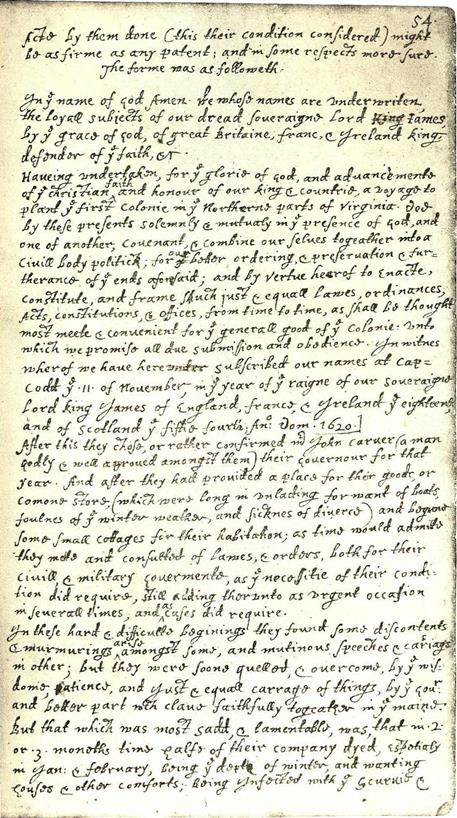 54
Acts by them done (this their condition considered) might
be as firme as any patent; and in some respects more sure.
The forme was as followeth.
In yͤ name of god Amen. We whose names are underwriten,
the loyall subjects of our dread soveraigne Lord King James
by yͤ grace of God, of great Britaine, franc, & Ireland king,
defender of yͤ faith, &c
Haveing undertaken, for yͤ glorie of god, and advancemente
of yͤ christian faith and honour of our king & countrie, a voyage to
plant yͤ first colonie in yͤ Northerne parts of Virginia. Doe
by these presents solemnly & mutualy in yͤ presence of God, and
one of another, covenant, & combine our selves togeather into a
Civill body politick; for our better ordering, & preservation & fur-
therance of yͤ ends aforesaid; and by vertue hearof to Enacte,
constitute, and frame such just & equall Lawes, ordinances,
Acts, constitutions, & offices, from time to time, as shall be thought
most meete & convenient for yͤ generall good of yͤ Colonie: unto
which we promise all due submission and obedience. In witnes
wherof we have hereunder subscribed our names at Cap-
Codd yͤ .11. of November, in yͤ year of yͤ raigne of our soveraigne
Lord king James of England, france, & Ireland yͤ eighteenth
and of Scotland yͤ fiftie fourth. Anͦ: Dom. 1620.]
After this they chose, or rather confirmed mͬ John carver (a man
godly & well approved amongst them) their governour for that
year. And after they had provided a place for their goods, or
comone store, (which were long in unlading for want of boats,
foulnes of yͤ winter weather, and sicknes of diverce) and begune
some small cotages for their habitation; as time would admitte
they mette and consulted of Lawes, & orders, both for their
civill, & military Govermente, as yͤ necessitie of their condi-
tion did require, still adding therunto as urgent occasion
in severall times, and as cases did require.
In these hard & difficulte beginings they found some discontents
& murmurings arise amongst some, and mutinous speeches & cariags
in other; but they were soone quelled, & overcome, by yͤ wis-
dome, patience, and just & equall carrage of things, by yͤ Govͬ
and better part wͨh clave faithfully togeather in yͤ maine.
But that which was most sadd, & lamentable, was that in .2.
or .3. moneths time halfe of their company dyed, espetialy
in Jan: & february, being yͤ depth of winter, and wanting
houses & other comforts; being Infected with yͤ Scurvie &